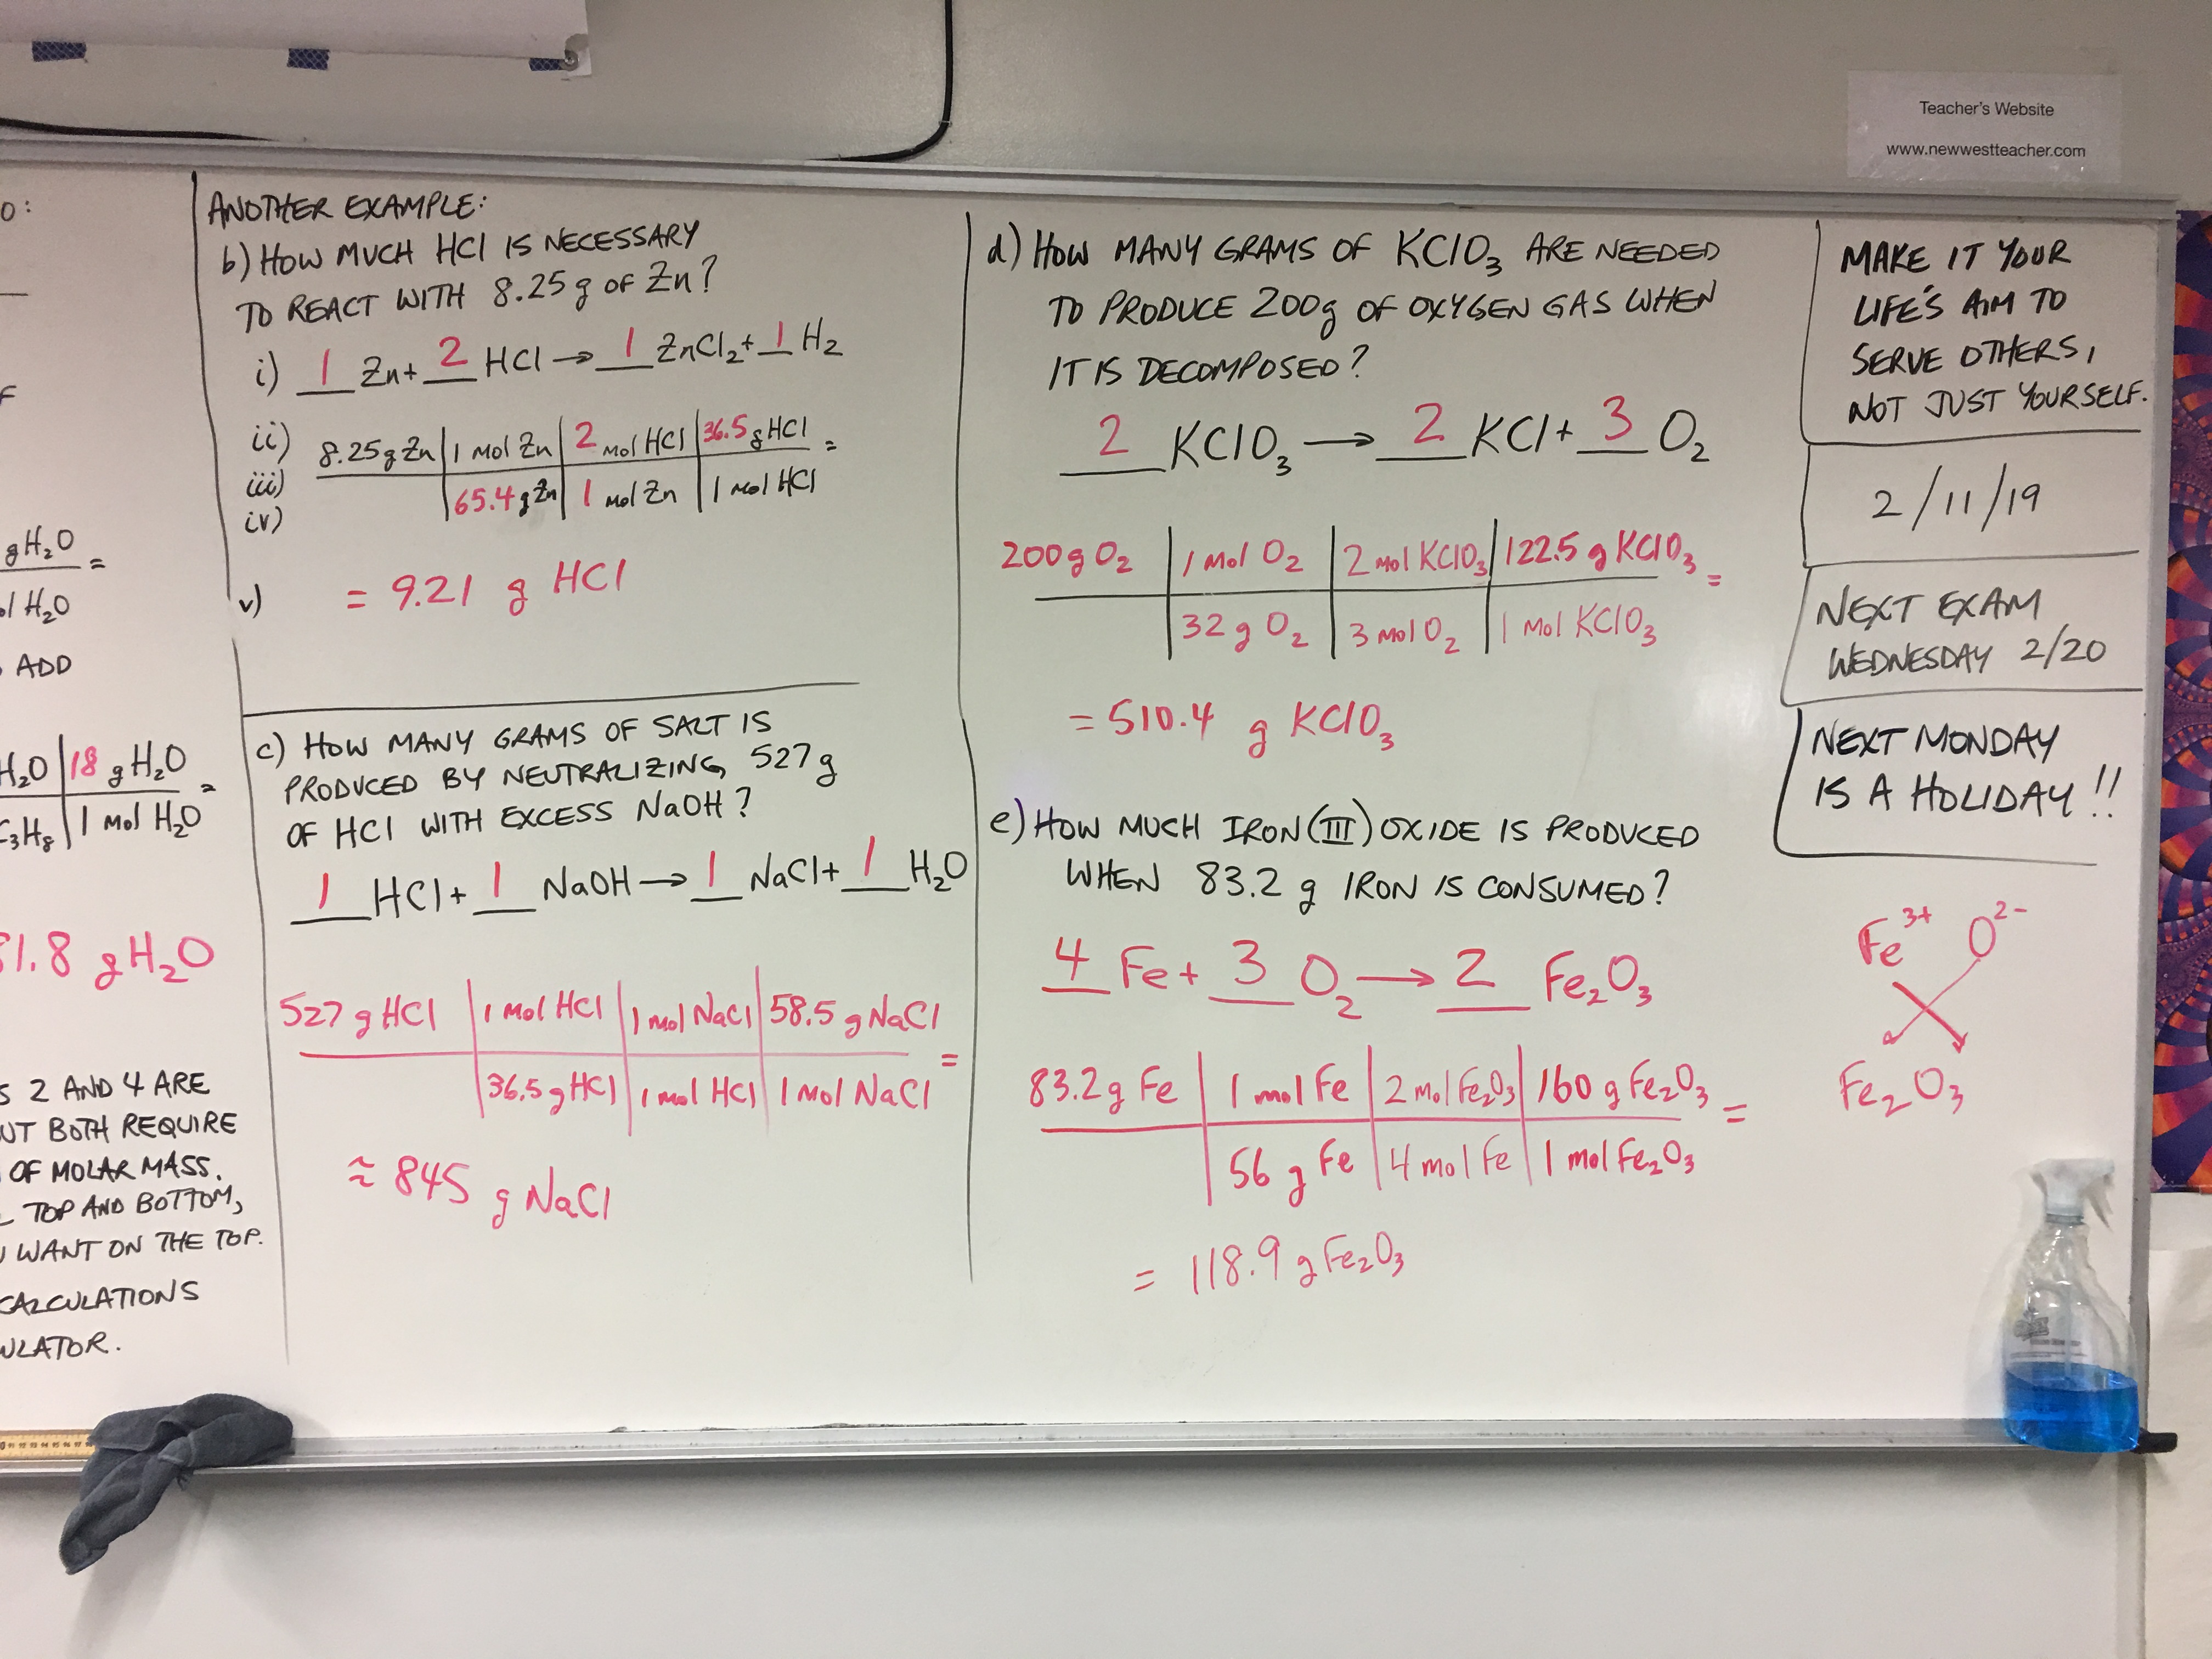 Teacher's Website
www.newwestteacher.com
O:
F
gH₂O =
mol H₂O
ADD
H₂O | 18 gH₂O =
C₃H₈ | 1 mol H₂O
81.8 gH₂O
2 AND 4 ARE
BOTH REQUIRE
OF MOLAR MASS.
TOP AND BOTTOM,
WANT ON THE TOP.
CALCULATIONS
ANOTHER EXAMPLE:
b) HOW MUCH HCl IS NECESSARY
TO REACT WITH 8.25g OF Zn?
i) 1 Zn + 2 HCl → 1 ZnCl₂ + 1 H₂
ii) 8.25g Zn | 1 mol Zn | 2 mol HCl | 36.5 g HCl =
iii) 65.4 g Zn | 1 mol Zn | 1 mol HCl
iv)
v) = 9.21 g HCl
c) HOW MANY GRAMS OF SALT IS
PRODUCED BY NEUTRALIZING 527g
OF HCl WITH EXCESS NaOH?
1 HCl + 1 NaOH → 1 NaCl + 1 H₂O
527 g HCl | 1 mol HCl | 1 mol NaCl | 58.5 g NaCl =
36.5 g HCl | 1 mol HCl | 1 mol NaCl
≈ 845 g NaCl
d) HOW MANY GRAMS OF KClO₃ ARE NEEDED
TO PRODUCE 200g OF OXYGEN GAS WHEN
IT IS DECOMPOSED?
2 KClO₃ → 2 KCl + 3 O₂
200g O₂ | 1 mol O₂ | 2 mol KClO₃ | 122.5 g KClO₃ =
32 g O₂ | 3 mol O₂ | 1 mol KClO₃
= 510.4 g KClO₃
e) HOW MUCH IRON (III) OXIDE IS PRODUCED
WHEN 83.2 g IRON IS CONSUMED?
4 Fe + 3 O₂ → 2 Fe₂O₃
83.2g Fe | 1 mol Fe | 2 mol Fe₂O₃ | 160 g Fe₂O₃ =
56 g Fe | 4 mol Fe | 1 mol Fe₂O₃
= 118.9 g Fe₂O₃
MAKE IT YOUR
LIFE'S AIM TO
SERVE OTHERS,
NOT JUST YOURSELF.
2/11/19
NEXT EXAM
WEDNESDAY 2/20
NEXT MONDAY
IS A HOLIDAY!!
Fe³⁺ O²⁻
Fe₂O₃